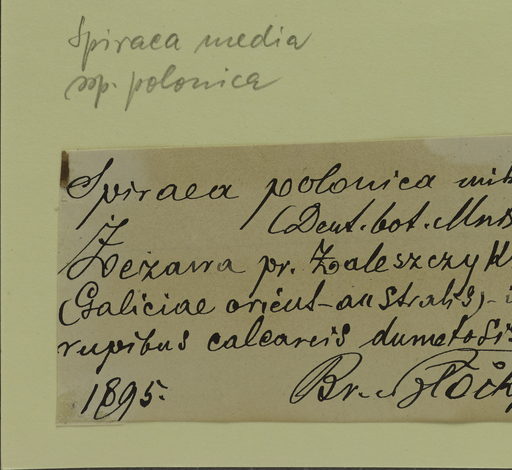 Spiraea media
ssp. polonica
Spiraea polonica mih
(Deut. bot. Mns
Żeżawa pr. Zaleszczyk
(Galiciae orient-australis), i
rupibus calcareis dumetosis
1895. Br. Błock